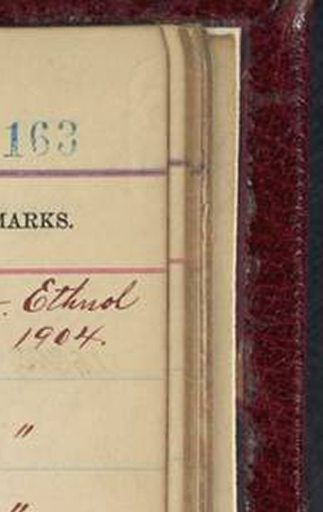 163
MARKS.
. Ethnol
1904.
"
"